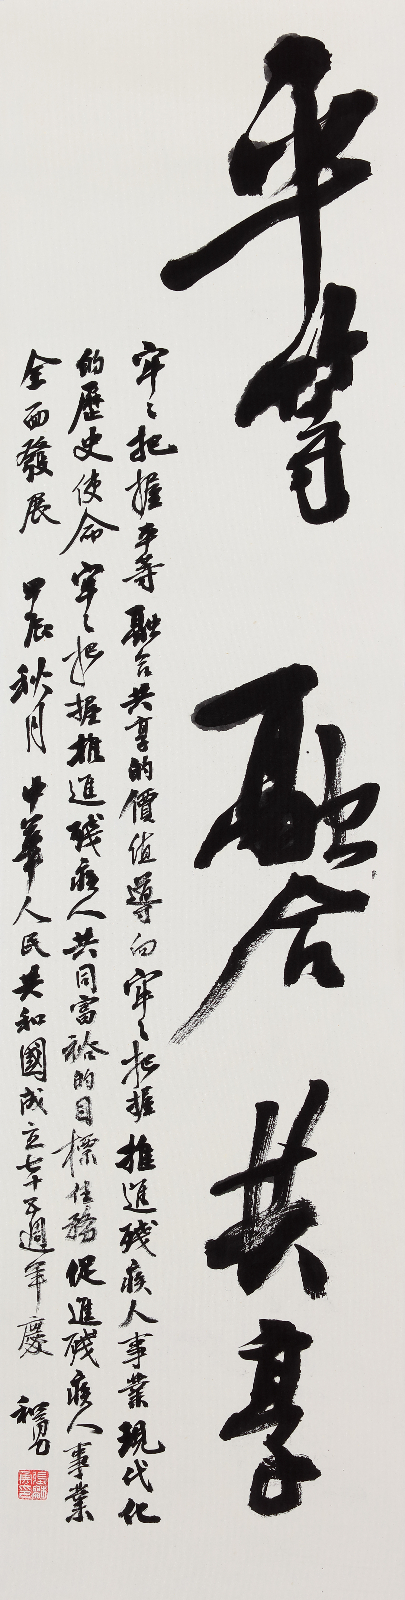 平等 融合 共享
牢〻把握平等融合共享的價值導向牢〻把握推進殘疾人事業現代化
的歷史使命牢〻把握推進殘疾人共同富裕的目標任務促進殘疾人事業
全面發展 甲辰秋月 中華人民共和國成立七十五週年慶 和勇